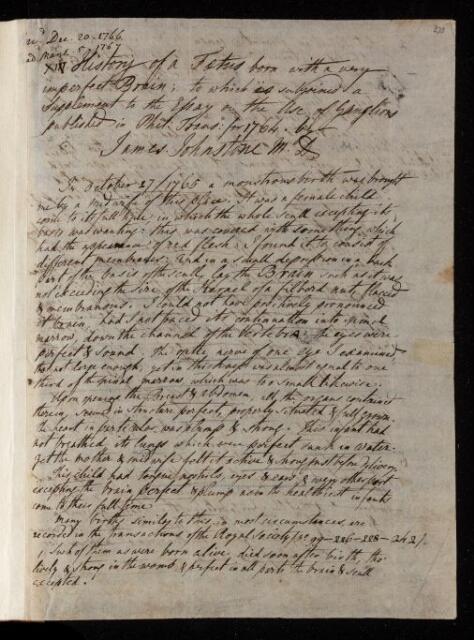 Dec. 20. 1766
1767
271
XIV History of a Fetus born with a very
imperfect Brain; to which is subjoined a
Supplement to the Essay on the Use of Ganglions
published in Phil. Trans: for 1764. by
James Johnstone M.D.
In October 27/1765 a monstrous birth was brought
me by a midwife of this place. It was a female child
come to its full time, in which the whole Scull excepting its
basis was wanting: this was covered with something which
had the appearance of red flesh: I found it to consist of
different membranes: and in a small depression in a back
part of the basis of the scull, lay the Brain such as it was
not exceeding the size of the Kernel of a filberd nut, flaccid
& membranous. I could not have positively pronounced
it brain, had I not traced its continuation into spinal
marrow, down the channel of the Vertebræ. The eyes were
perfect & sound. The optic nerve of one Eye I examined
that was large enough; yet in thickness was almost equal to one
third of the spinal marrow which was too small likewise.
Upon opening the breast & abdomen, all the organs contained
therein, seemed in structure perfect, properly situated & full grown.
the heart in particular was plump & strong. This infant had
not breathed, its lungs which were perfect sunk in water.
yet the mother & midwife felt it active & strong just before delivery
This child had tongue, nostrils, eyes & ears, & every other part
excepting the brain perfect & plump as in the healthiest infants
come to their full time
Many births similar to this, in most circumstances, are
recorded in the transactions of the Royal Society (No 99-226-228-242).
Such of them as were born alive, died soon after birth, tho'
lively & strong in the womb & perfect in all parts the brain & scull
excepted.